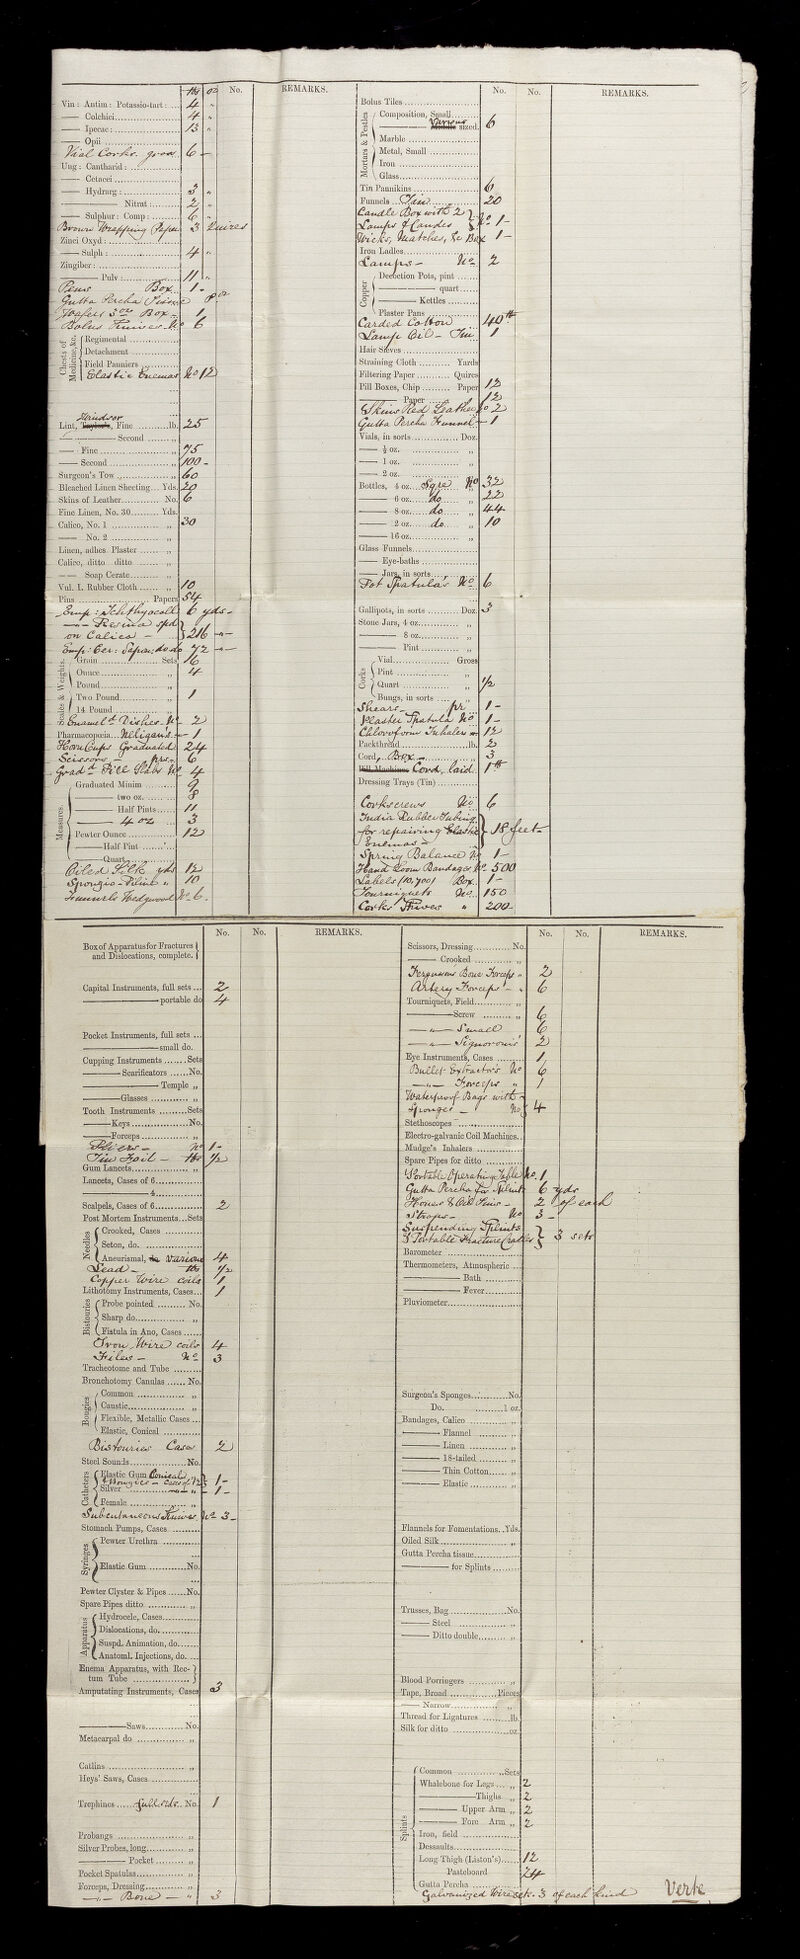 lbs oz No. REMARKS.
Vin: Antim: Potassio-tart: ... 4 "
—— Colchici 4 "
—— Ipecac: 13 "
—— Opii
Vial Corks. gross 6 —
Ung: Cantharid:
—— Cetacei
—— Hydrarg: 3 "
—— Nitrat: 2 "
—— Sulphur: Comp: 6 "
Brown Wrapping Paper 3 Quires
Zinci Oxyd:
—— Sulph: 4 "
Zingiber:
—— Pulv: 11 "
Pens Box 1 -
Gutta Percha Tissue 8 oz
Wafers 3 oz Box - 1
Bolus Knives No 6
Chests of Medicine, &c.
Regimental
Detachment
Field Panniers
Elastic Enemas No 12
Windsor
Lint, Taylor's, Fine lb. 25
—— Second "
— Fine " 75
— Second " 100 -
Surgeon's Tow " 60
Bleached Linen Sheeting Yds. 20
Skins of Leather No. 6
Fine Linen, No. 30 Yds.
Calico, No. 1 " 30
—— No. 2 "
Linen, adhes Plaster "
Calico, ditto ditto "
—— Soap Cerate "
Vul. I. Rubber Cloth " 10
Pins Papers 54
Emp: Ichthyocoll 6 yds -
—"— Resinæ spd
on Calico - } 216 —"—
Emp: Cer: Sapon: do do 72 —"—
Scales & Weights.
Grain Sets 16
Ounce " 4
Pound "
Two Pound " 1
14 Pound "
Enameld Dishes No - 2
Pharmacopœia Neligan's — 1
Horn Cups Graduated 24
Scissors — prs - 6
Gradd Pill Slabs No 4
Measures.
Graduated Minim 9
—— two oz. 8
—— Half Pints 11
—— 4 oz 3
Pewter Ounce 12
—— Half Pint
—— Quart
Oiled Silk yds 12
Spongio-Piline " 10
Funnels Wedgwood No 6.
No. No. REMARKS.
Bolus Tiles
Mortars & Pestles
Composition, Small
—— Various sized. 6
Marble
Metal, Small
Iron
Glass
Tin Pannikins 6
Funnels Tin 20
Candle Box with 2
Lamps & Candles } No 1 -
Wicks, Matches, &c Box 1 -
Iron Ladles
Lamps - No 2
Copper
Decoction Pots, pint
—— quart
—— Kettles
Plaster Pans
Carded Cotton 40 lb
Lamp Oil - Tin 1
Hair Sieves
Straining Cloth Yards
Filtering Paper Quires
Pill Boxes, Chip Paper 12
—— Paper 12
Skins Red Leather No 2
Gutta Percha Funnel — 1
Vials, in sorts Doz.
—— ½ oz. "
—— 1 oz. "
—— 2 oz. "
Bottles, 4 oz. Sqre No 32
—— 6 oz. do " 22
—— 8 oz. do " 44
—— 2 oz. do " 10
—— 16 oz. "
Glass Funnels
—— Eye-baths
—— Jars, in sorts
Pot Spatulas No 6
Gallipots, in sorts Doz. 3
Stone Jars, 4 oz. "
—— 8 oz. "
—— Pint "
Corks
Vial Gross
Pint "
Quart " 1/2
Bungs, in sorts "
Shears - pr 1 -
Plaster Spatula No 1 -
Chloroform Inhalers — 12
Packthread lb. 2
Cord, Box - 3
Pill Machines Cord, laid. 1 lb
Dressing Trays (Tin)
Corkscrews No 6
India Rubber Tubing
for repairing Elastic
Enemas - } 18 feet -
Spring Balance No 1 -
Hand Loom Bandages No 500
Labels (10,700) Box. 1 -
Tourniquets No. 150
Corks " 200 -
No. No. REMARKS.
Box of Apparatus for Fractures
and Dislocations, complete. }
Capital Instruments, full sets 2
—— portable do 4
Pocket Instruments, full sets
—— small do.
Cupping Instruments Sets
—— Scarificators No.
—— Temple "
—— Glasses "
Tooth Instruments Sets
—— Keys No.
—— Forceps "
Pliers - No 1 -
Tin Foil - lbs 1/2
Gum Lancets "
Lancets, Cases of 6
—— 4
Scalpels, Cases of 6 2
Post Mortem Instruments Sets
Needles
Crooked, Cases
Seton, do.
Aneurismal, do various 4
Lead - lbs 1/2
Copper Wire coils 1
Lithotomy Instruments, Cases 1
Bistouries
Probe pointed No.
Sharp do. "
Fistula in Ano, Cases
Iron Wire coils 4
Files - No 3
Tracheotome and Tube
Bronchotomy Canulas No.
Bougies
Common "
Caustic "
Flexible, Metallic Cases
Elastic, Conical
Bistouries Cases 2
Steel Sounds No.
Catheters
Elastic Gum Conical
& Bougies - Cases of 12 } 1 -
Silver " - 1 -
Female "
Subcutaneous Knives No 3 -
Stomach Pumps, Cases
Syringes
Pewter Urethra
Elastic Gum No.
Pewter Clyster & Pipes No.
Spare Pipes ditto "
Apparatus
Hydrocele, Cases
Dislocations, do.
Suspd. Animation, do.
Anatoml. Injections, do.
Enema Apparatus, with Rec-
tum Tube }
Amputating Instruments, Cases 3
—— Saws No.
Metacarpal do "
Catlins "
Heys' Saws, Cases
Trephines full sets No. 1
Probangs "
Silver Probes, long "
—— Pocket "
Pocket Spatulas "
Forceps, Dressing "
—"— Bone — " 3
No. No. REMARKS.
Scissors, Dressing No.
—— Crooked "
Fergusons Bone Forceps " 2
Artery Forceps - " 6
Tourniquets, Field "
—— Screw " 6
—"— Small 6
—"— Signoroni's 2
Eye Instruments, Cases 1
Bullet Extractors No 6
—"— Forceps " 1
Waterproof Bags with
Sponges - No } 4
Stethoscopes
Electro-galvanic Coil Machines
Mudge's Inhalers
Spare Pipes for ditto
Portable Operating Table No. 1
Gutta Percha for Splints 6 yds
Hones & Oil Tins - 2 of each
Strops - No 3 -
Suspending Splints
& Portable Fracture Cradles } 3 sets
Barometer
Thermometers, Atmospheric
—— Bath
—— Fever
Pluviometer
Surgeon's Sponges No.
Do. 1 oz.
Bandages, Calico "
—— Flannel "
—— Linen "
—— 18-tailed "
—— Thin Cotton "
—— Elastic "
Flannels for Fomentations Yds.
Oiled Silk "
Gutta Percha tissue
—— for Splints
Trusses, Bag No.
—— Steel "
—— Ditto double "
Blood Porringers "
Tape, Broad Pieces
—— Narrow "
Thread for Ligatures lb.
Silk for ditto oz
Splints
Common Sets
Whalebone for Legs " 2
—— Thighs " 2
—— Upper Arm " 2
—— Fore Arm " 2
Iron, field
Dessaults
Long Thigh (Liston's) 12
Pasteboard 24
Gutta Percha
Galvanized Wire sets. 3 of each kind
Verte